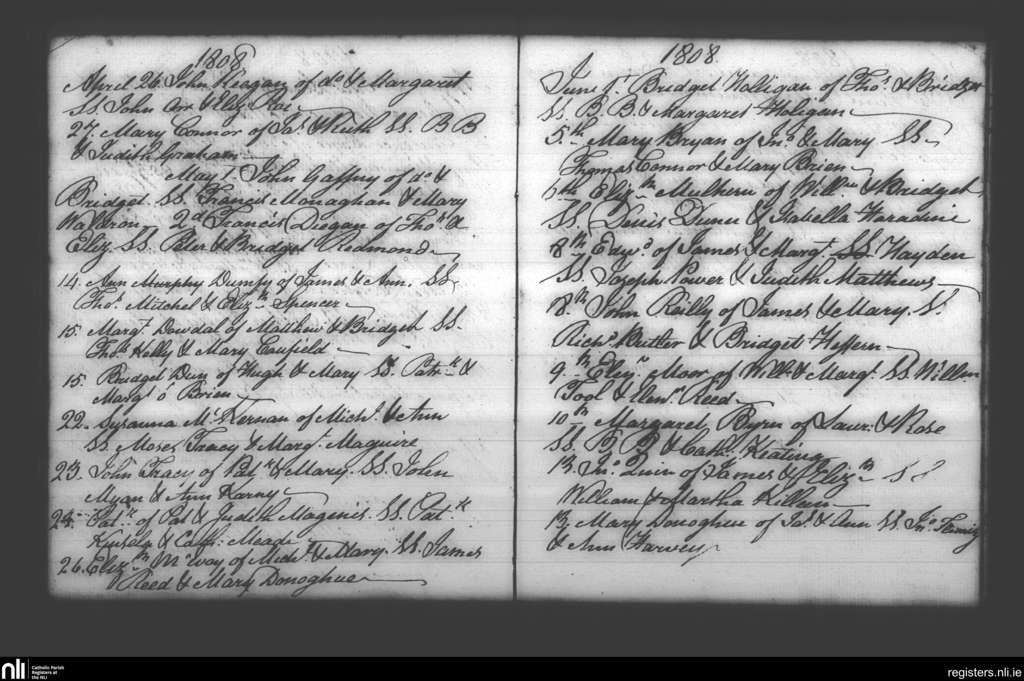 1808
April 26 John Keogan of do & Margaret
SS. John Orr & Eliz. Roe
27. Mary Connor of Jas. & Ruth SS. B B
& Judith Graham
May 1. John Gaffny of do &
Bridget. SS. Francis Monaghan & Mary
Waldron. 2d Francis Diegan of Thos. &
Eliz. SS. Peter & Bridget Redmond
14. Ann Murphy Dumpy of James & Ann. SS
Thos. Mitchel & Elizth Spencer
15. Margt. Dowdal of Matthew & Bridget SS.
Thos. Kelly & Mary Caufield
15. Bridget Dun of Hugh & Mary SS. Patrck &
Margt. o' Brien
22. Susanna Mc Kernan of Michl. & Ann
SS. Moses Tracy & Margt. Maguire
23. John Tracy of Patk & Mary. SS. John
Ryan & Ann Karny
24. Patk of Pat & Judith Magenis. SS. Patk
Kinsela & Cath: Meade
26. Elizth Mc Evoy of Michl & Mary. SS. James
Reed & Mary Donoghue
1808
June 1st. Bridget Holligan of Thos. & Bridget
SS. B. B & Margaret Holigan
5th Mary Bryan of Jno. & Mary SS
Thomas Connor & Mary Brien
6th Elizth Mulhern of Willm & Bridget
SS. Denis Dunn & Isabella
8th Edwd. of James & Margt. SS Hayden
SS Joseph Power & Judith Matthews
8th. John Reilly of James & Mary. S.
Richd. Butler & Bridget Heffern
9th Elizh Moor of Willm & Margt. SS Willm
Tool & Elenr. Reed
10th Margaret Byrn of Laur: & Rose
SS. B B & Cath. Keating
13. Jno. Quin of James & Elizth SS
William & Martha Killeen
13, Mary Donoghue of Jas. & Ann SS. Jno.
& Ann Harvey
nli
Catholic Parish
Registers at
the NLI
registers.nli.ie